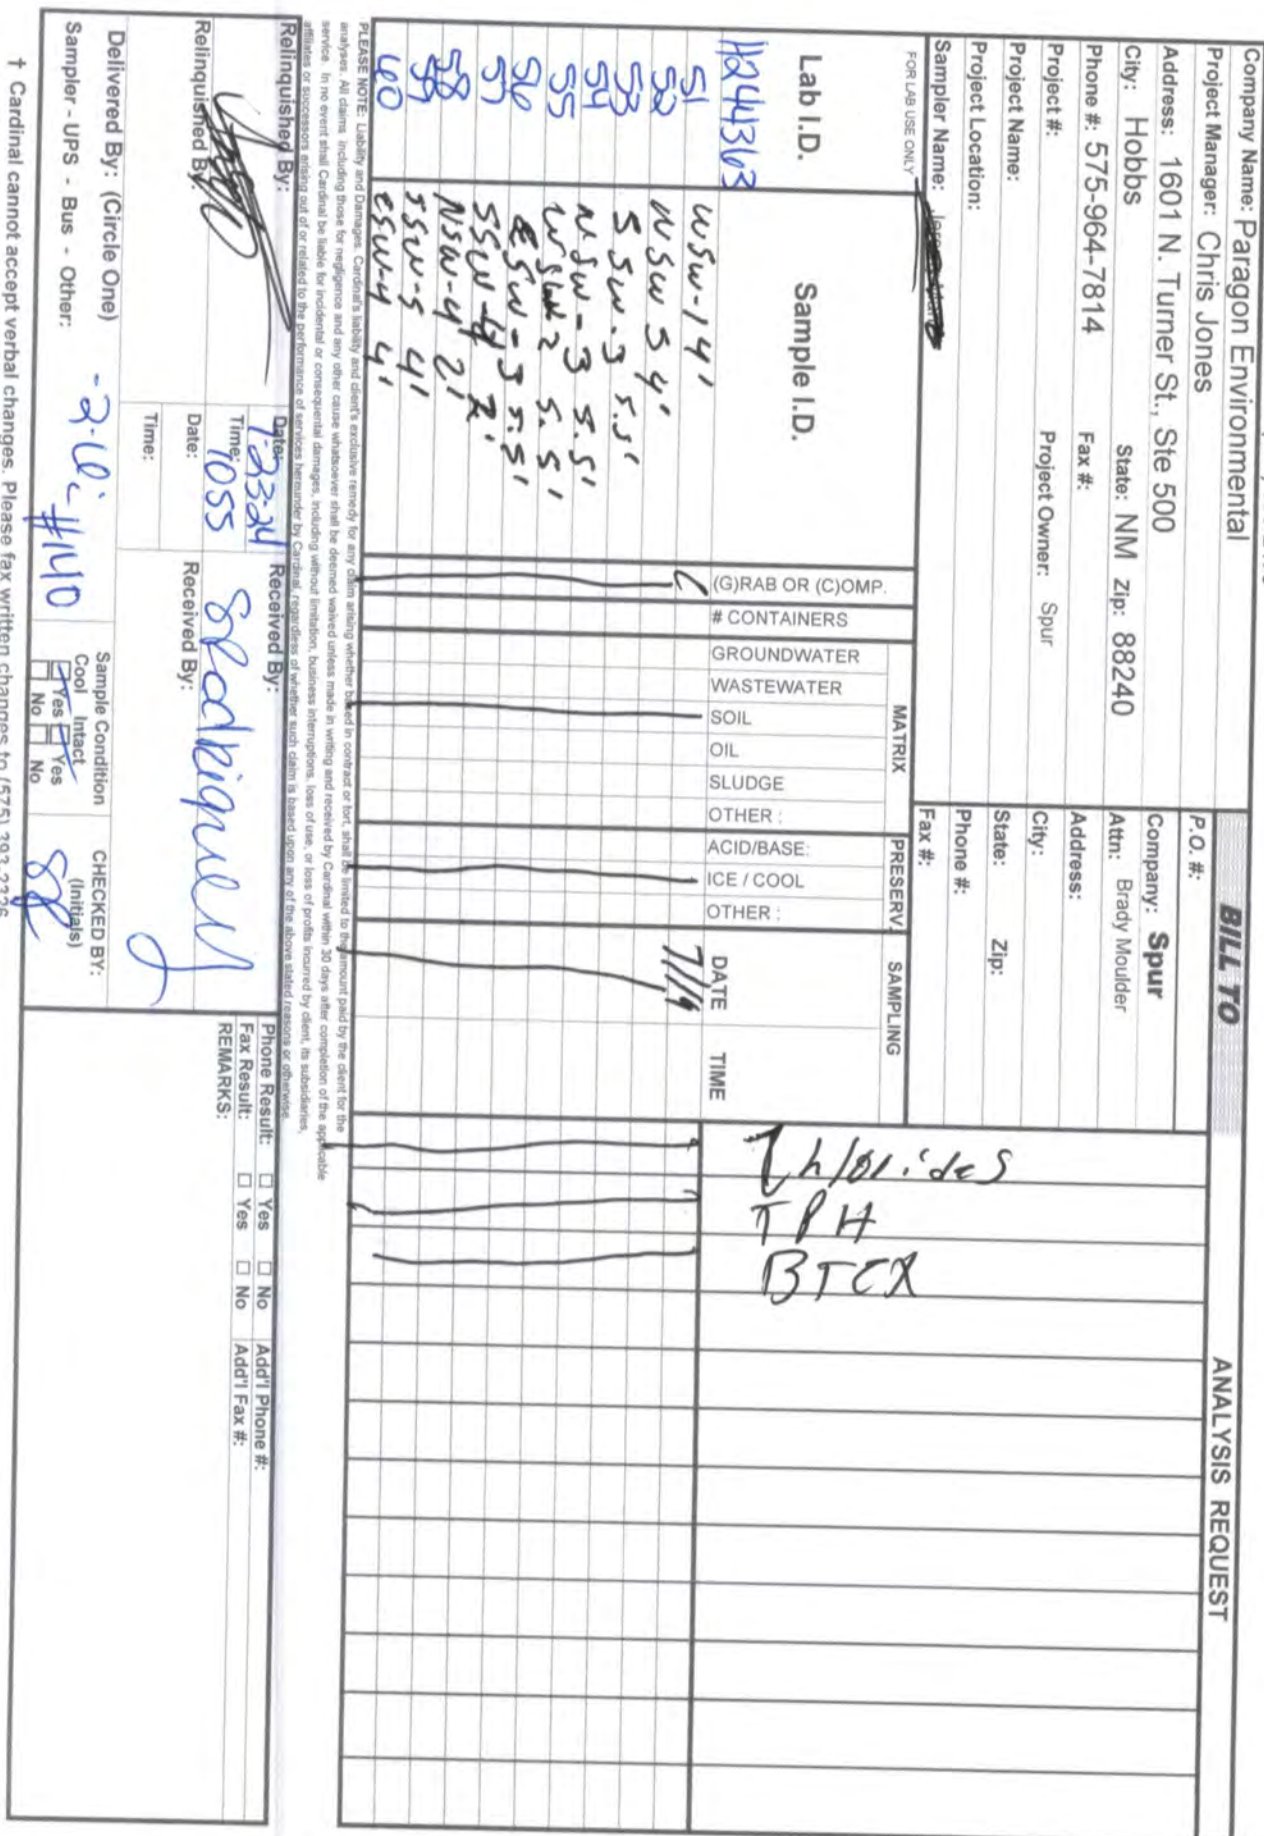 Company Name: Paragon Environmental
Project Manager: Chris Jones
Address: 1601 N. Turner St., Ste 500
City: Hobbs State: NM Zip: 88240
Phone #: 575-964-7814 Fax #:
Project #: Project Owner: Spur
Project Name:
Project Location:
Sampler Name:
BILL TO
P.O. #:
Company: Spur
Attn: Brady Moulder
Address:
City:
State: Zip:
Phone #:
Fax #:
ANALYSIS REQUEST
FOR LAB USE ONLY
MATRIX PRESERV. SAMPLING
Lab I.D. Sample I.D.
(G)RAB OR (C)OMP.
# CONTAINERS
GROUNDWATER
WASTEWATER
SOIL
OIL
SLUDGE
OTHER :
ACID/BASE:
ICE / COOL
OTHER :
DATE TIME
Chlorides
TPH
BTEX
H244363
51 WSW-1 4' C 7/19
52 NSW 5 4'
53 SSW-3 5.5'
54 NSW-3 5.5'
55 WSW 2 5.5'
56 ESW-3 5.5'
57 SSW-4 2'
58 NSW-4 2'
59 SSW-5 4'
60 ESW-4 4'
PLEASE NOTE: Liability and Damages. Cardinal's liability and client's exclusive remedy for any claim arising whether based in contract or tort, shall be limited to the amount paid by the client for the
analyses. All claims including those for negligence and any other cause whatsoever shall be deemed waived unless made in writing and received by Cardinal within 30 days after completion of the applicable
service. In no event shall Cardinal be liable for incidental or consequental damages, including without limitation, business interruptions, loss of use, or loss of profits incurred by client, its subsidiaries,
affiliates or successors arising out of or related to the performance of services hereunder by Cardinal, regardless of whether such claim is based upon any of the above stated reasons or otherwise.
Relinquished By: Date: 7-23-24 Received By:
Time: 1055 SRodriguez
Relinquished By: Date: Received By:
Time:
Phone Result: □ Yes □ No Add'l Phone #:
Fax Result: □ Yes □ No Add'l Fax #:
REMARKS:
Delivered By: (Circle One) Sample Condition CHECKED BY:
Cool Intact (Initials)
Sampler - UPS - Bus - Other: #140 □ Yes □ Yes SR
□ No □ No
† Cardinal cannot accept verbal changes. Please fax written changes to (575) 393-2326